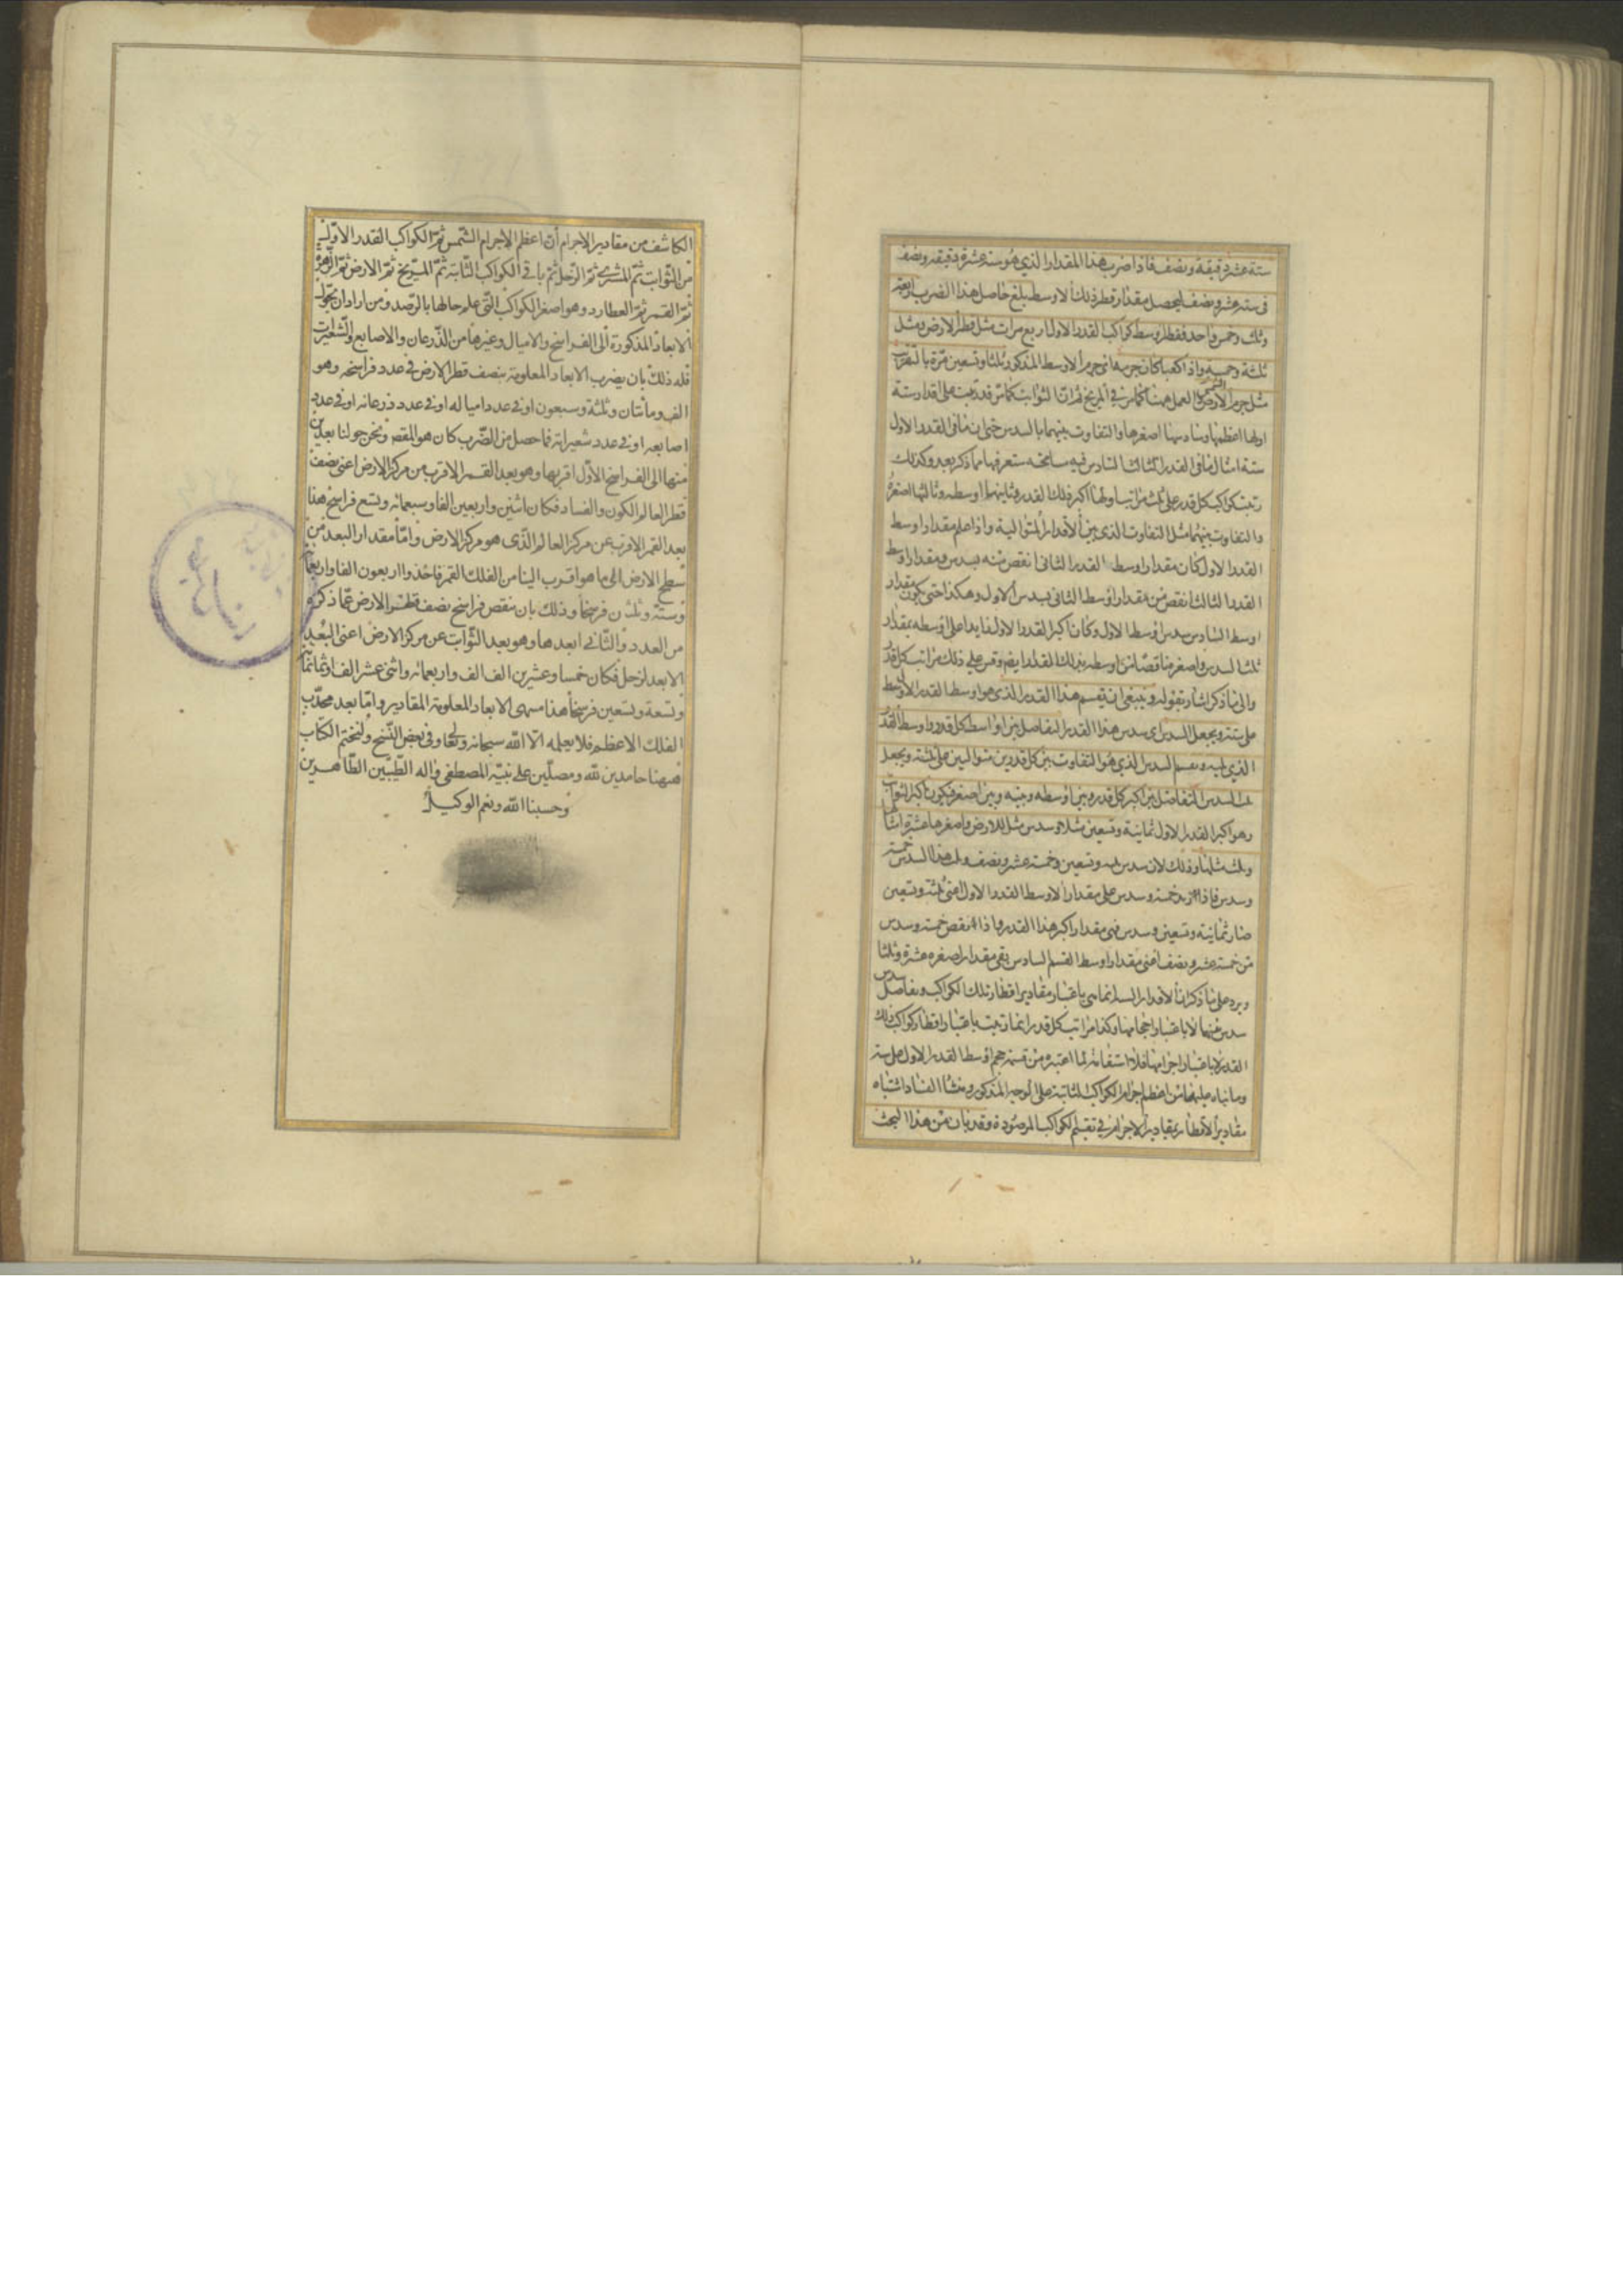 ستة عشر دقيقة ونصف فاذا ضرب هذا المقدار الذى هو ستة عشرة دقيقة ونصف
فى ستة عشر ونصف ليحصل مقدار قطر ذلك الاوسط بلغ حاصل هذا الضرب اربعة
وثلث وخمس واحد فقطر اوسط كواكب القدر الاول اربع مرات مثل قطر الارض ومثل
ثلثه وخمسه واذا كعب كان جرمه اى جرم الاوسط المذكور ثلثا وتسعين مرة بالتقريب
مثل جرم الارض العمل ههنا كما مر فى المريخ ثم ان الثوابت كما مر قد رتبت على اقدار ستة
اولها اعظمها وسادسها اصغرها والتفاوت بينهما بالسدس حتى ان ما فى القدر الاول
ستة امثال ما فى القدر السادس فيه مسامحة ستعرفها مما ذكر بعد وكذلك
رتبت كواكب كل قدر على ثلث مراتب اولها اكبر ذلك القدر وثانيها اوسطه وثالثها اصغره
والتفاوت بينهما مثل التفاوت الذى بين الاقدار المتوالية واذا علم مقدار اوسط
القدر الاول كان مقدار اوسط القدر الثانى انقص منه بسدس ومقدار اوسط
القدر الثالث انقص من مقدار اوسط الثانى بسدس الاول وهكذا حتى يكون مقدار
اوسط السادس سدس اوسط الاول وكان اكبر القدر الاول زايدا على اوسطه بمقدار
ثلث السدس واصغره ناقصا من اوسطه بذلك القدر ايضا وقس على ذلك مراتب كل قدر
والى ما ذكر اشار بقوله وينبغى ان يقسم هذا القدر الذى هو اوسط القدر الاول
على ستة ويجعل السدس اى سدس هذا القدر التفاضل بين اواسط كل قدر واوسط القدر
الذى يليه ويقسم السدس الذى هو التفاوت بين كل قدرين متواليين على ثلثة ويجعل
ثلث السدس التفاضل بين اكبر كل قدر وبين اوسطه وبينه وبين اصغره فيكون اكبر الثوابت
وهو اكبر القدر الاول ثمانية وتسعين مثلا وسدس مثل للارض واصغرها عشرة امثال
وثلث مثلها وذلك لان سدس ثلثة وتسعين وخمسة عشر ونصف وثلث هذا السدس خمسة
وسدس فاذا زيد خمسة وسدس على مقدار الاوسط القدر الاول اعنى ثلثة وتسعين
صار ثمانية وتسعين وسدس فهى مقدار اكبر هذا القدر واذا نقص خمسة وسدس
من خمسة عشر ونصف اعنى مقدار اوسط القسم السادس بقى مقدار اصغره عشرة وثلثا
ويرد على ما ذكر ان الاقدار الستة انما هى باعتبار مقادير اقطار تلك الكواكب وتفاضل
سدس منها لا باعتبار احجامها وكذا مراتب كل قدر انما رتبت باعتبار اقطار كواكب ذلك
القدر لا باعتبار اجرامها فلا استقامة لما اعتبره من قسمة حجم اوسط القدر الاول على ستة
وما بناه عليها من اعظم اجرام الكواكب الثابتة على الوجه المذكور ومنشأ الفساد اشتباه
مقادير الاقطار بمقادير الاجرام فى تقسيم الكواكب المرصودة وقد بان من هذا البحث
الكاشف من مقادير الاجرام أن اعظم الاجرام الشمس ثم الكواكب القدر الاول
من الثوابت ثم المشترى ثم الزحل ثم باقى الكواكب الثابتة ثم المريخ ثم الارض ثم الزهرة
ثم القمر ثم العطارد وهو اصغر الكواكب التى علم حالها بالرصد ومن اراد ان يحول
الابعاد المذكورة الى الفراسخ والاميال وغيرها من الذرعان والاصابع والشعيرات
فله ذلك بان يضرب الابعاد المعلومة بنصف قطر الارض فى عدد فراسخه وهو
الف ومأتان وثلثة وسبعون او فى عدد امياله او فى عدد ذرعانه او فى عدد
اصابعه او فى عدد شعيراته فما حصل من الضرب كان هو المقص ونحن حولنا بعدين
منها الى الفراسخ الاول اقربها وهو بعد القمر الاقرب من مركز الارض اعنى نصف
قطر العالم الكون والفساد فكان اثنين واربعين الفا وسبعمائة وتسع فراسخ هذا
بعد القمر الاقرب عن مركز العالم الذى هو مركز الارض واما مقدار البعد من
سطح الارض الى ما هو اقرب الينا من الفلك القمر فاحد واربعون الفا واربعمائة
وستة وثلثون فرسخا وذلك بان ننقص فراسخ نصف قطر الارض عما ذكره
من العدد والثانى ابعدها وهو بعد الثوابت عن مركز الارض اعنى البعد
الابعد لزحل فكان خمسا وعشرين الف الف واربعمائة واثنى عشر الفا وثمانمائة
وتسعة وتسعين فرسخا هذا منتهى الابعاد المعلومة المقادير واما بعد محدب
الفلك الاعظم فلا يعلمه الا الله سبحانه وتعالى وفى بعض النسخ ولنختم الكتاب
ههنا حامدين لله ومصلين على نبيه المصطفى واله الطيبين الطاهرين
وحسبنا الله ونعم الوكيل